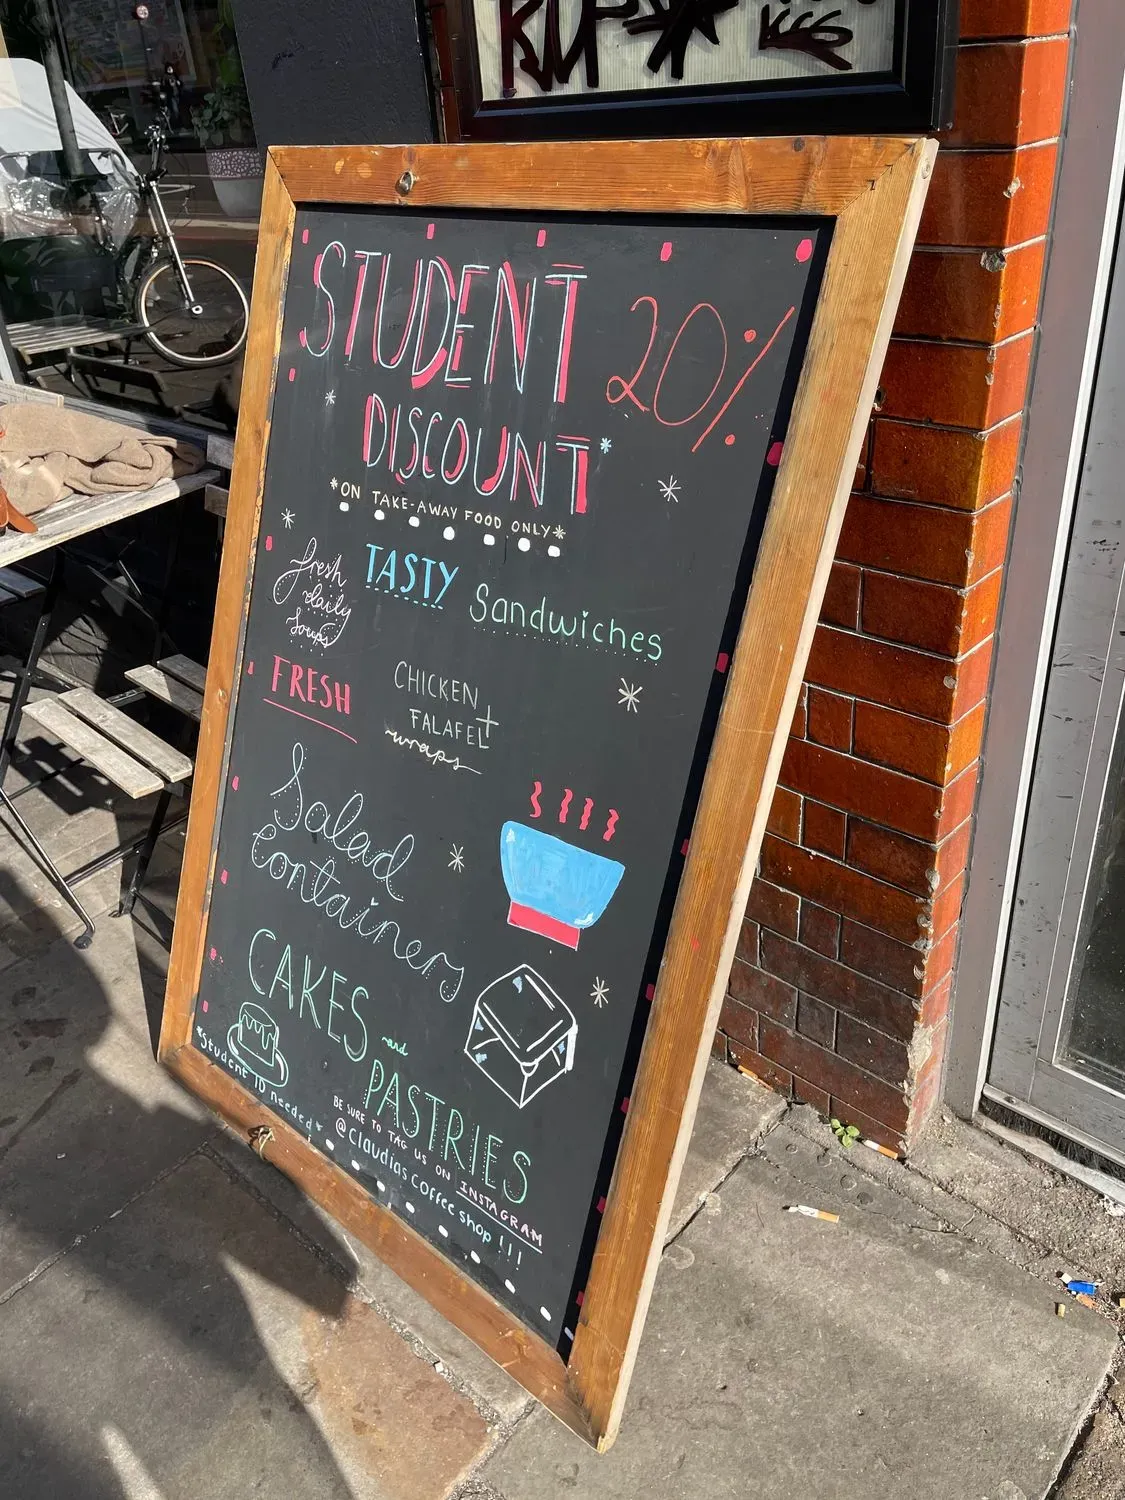 STUDENT 20%
DISCOUNT*
*ON TAKE-AWAY FOOD ONLY*
fresh
daily
soups
TASTY Sandwiches
FRESH
CHICKEN +
FALAFEL
wraps
Salad
containers
CAKES
and
PASTRIES
*Student ID needed*
BE SURE TO TAG US ON INSTAGRAM
@claudias coffee shop !!!